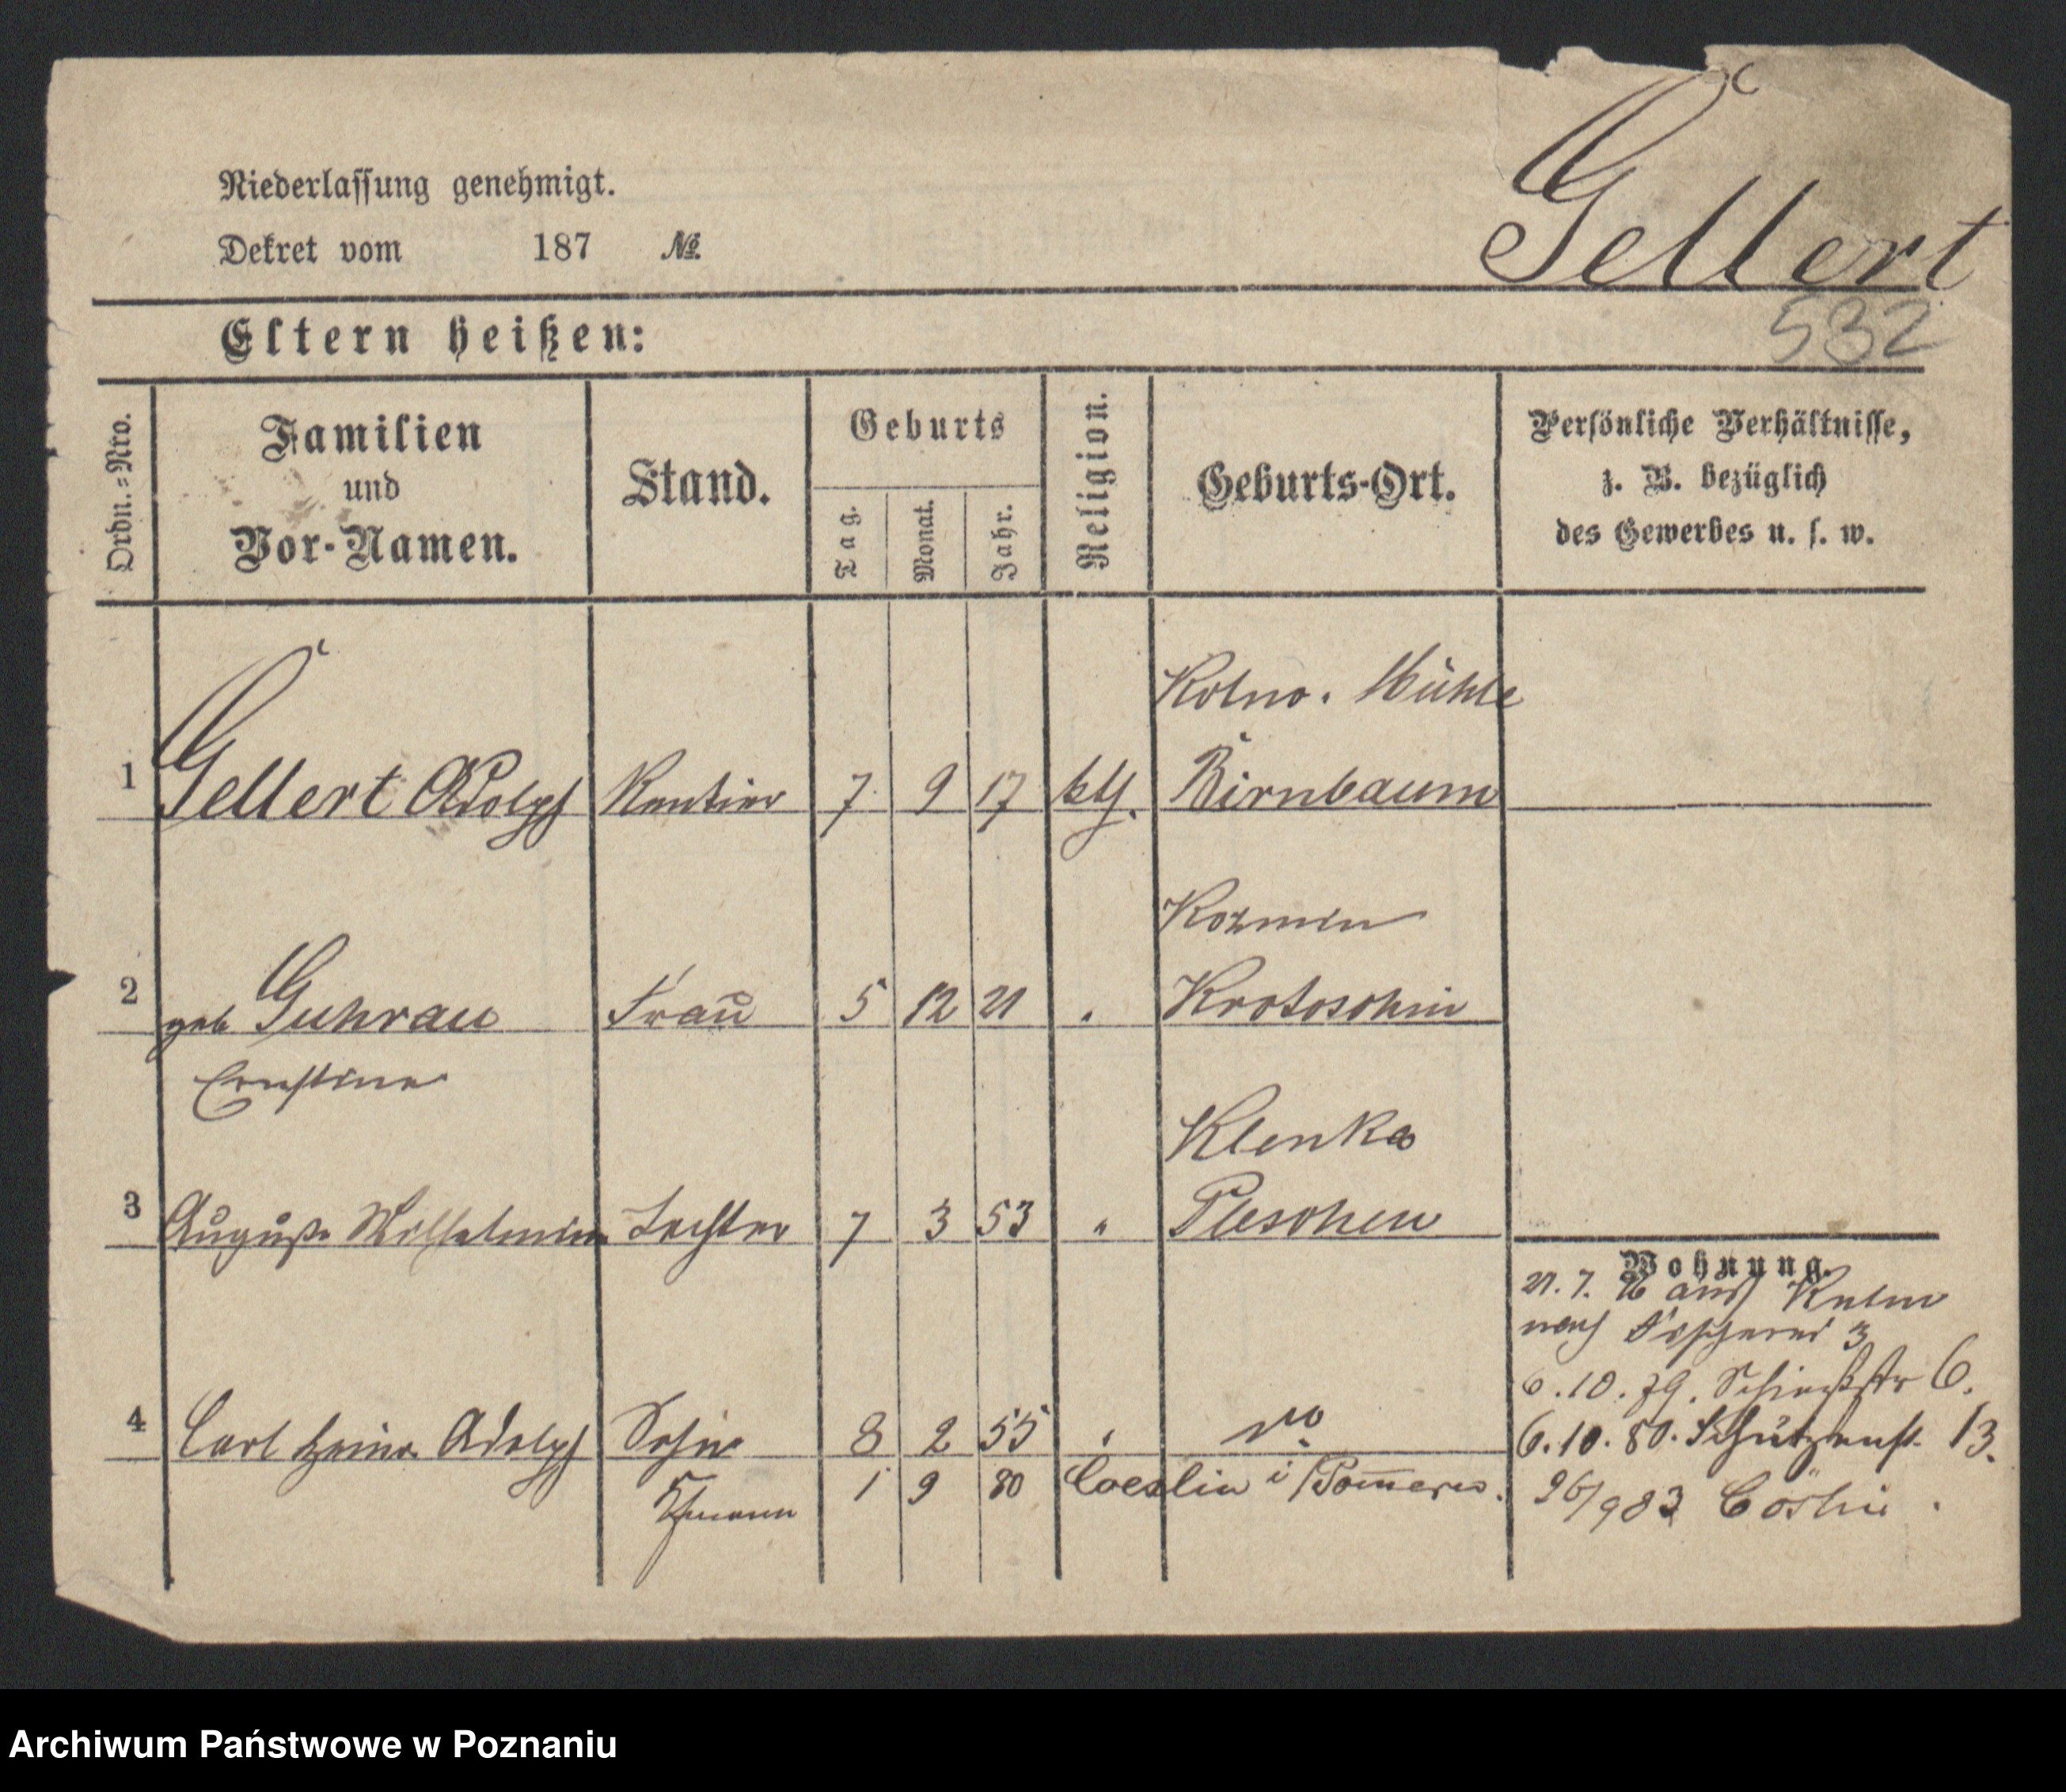 Gellert
Niederlassung genehmigt.
Dekret vom 187 №
532
Eltern heißen:
Ordn.=Nro.
Familien
und
Vor-Namen.
Stand.
Geburts
Tag.
Monat.
Jahr.
Religion.
Geburts-Ort.
Persönliche Verhältnisse,
z. B. bezüglich
des Gewerbes u. s. w.
Kolno. Mühle
1 Gellert Adolph Rentier 7 9 17 kth. Birnbaum
Kozmin
2 geb Guhrau Frau 5 12 21 " Krotoschin
Ernstine
Klenka
3 Auguste Wilhelmine Tochter 7 3 53 " Pleschen
Wohnung.
21. 7. aus Kulm
nach Fischerei 3
6.10.79. 6.
4 Carl Heinr. Adolph Sohn 8 2 55 "
6.10.80. Schützenst. 13.
1 9 80 Coeslin i/Pomern.
26/9 83 Cöslin.
Archiwum Państwowe w Poznaniu